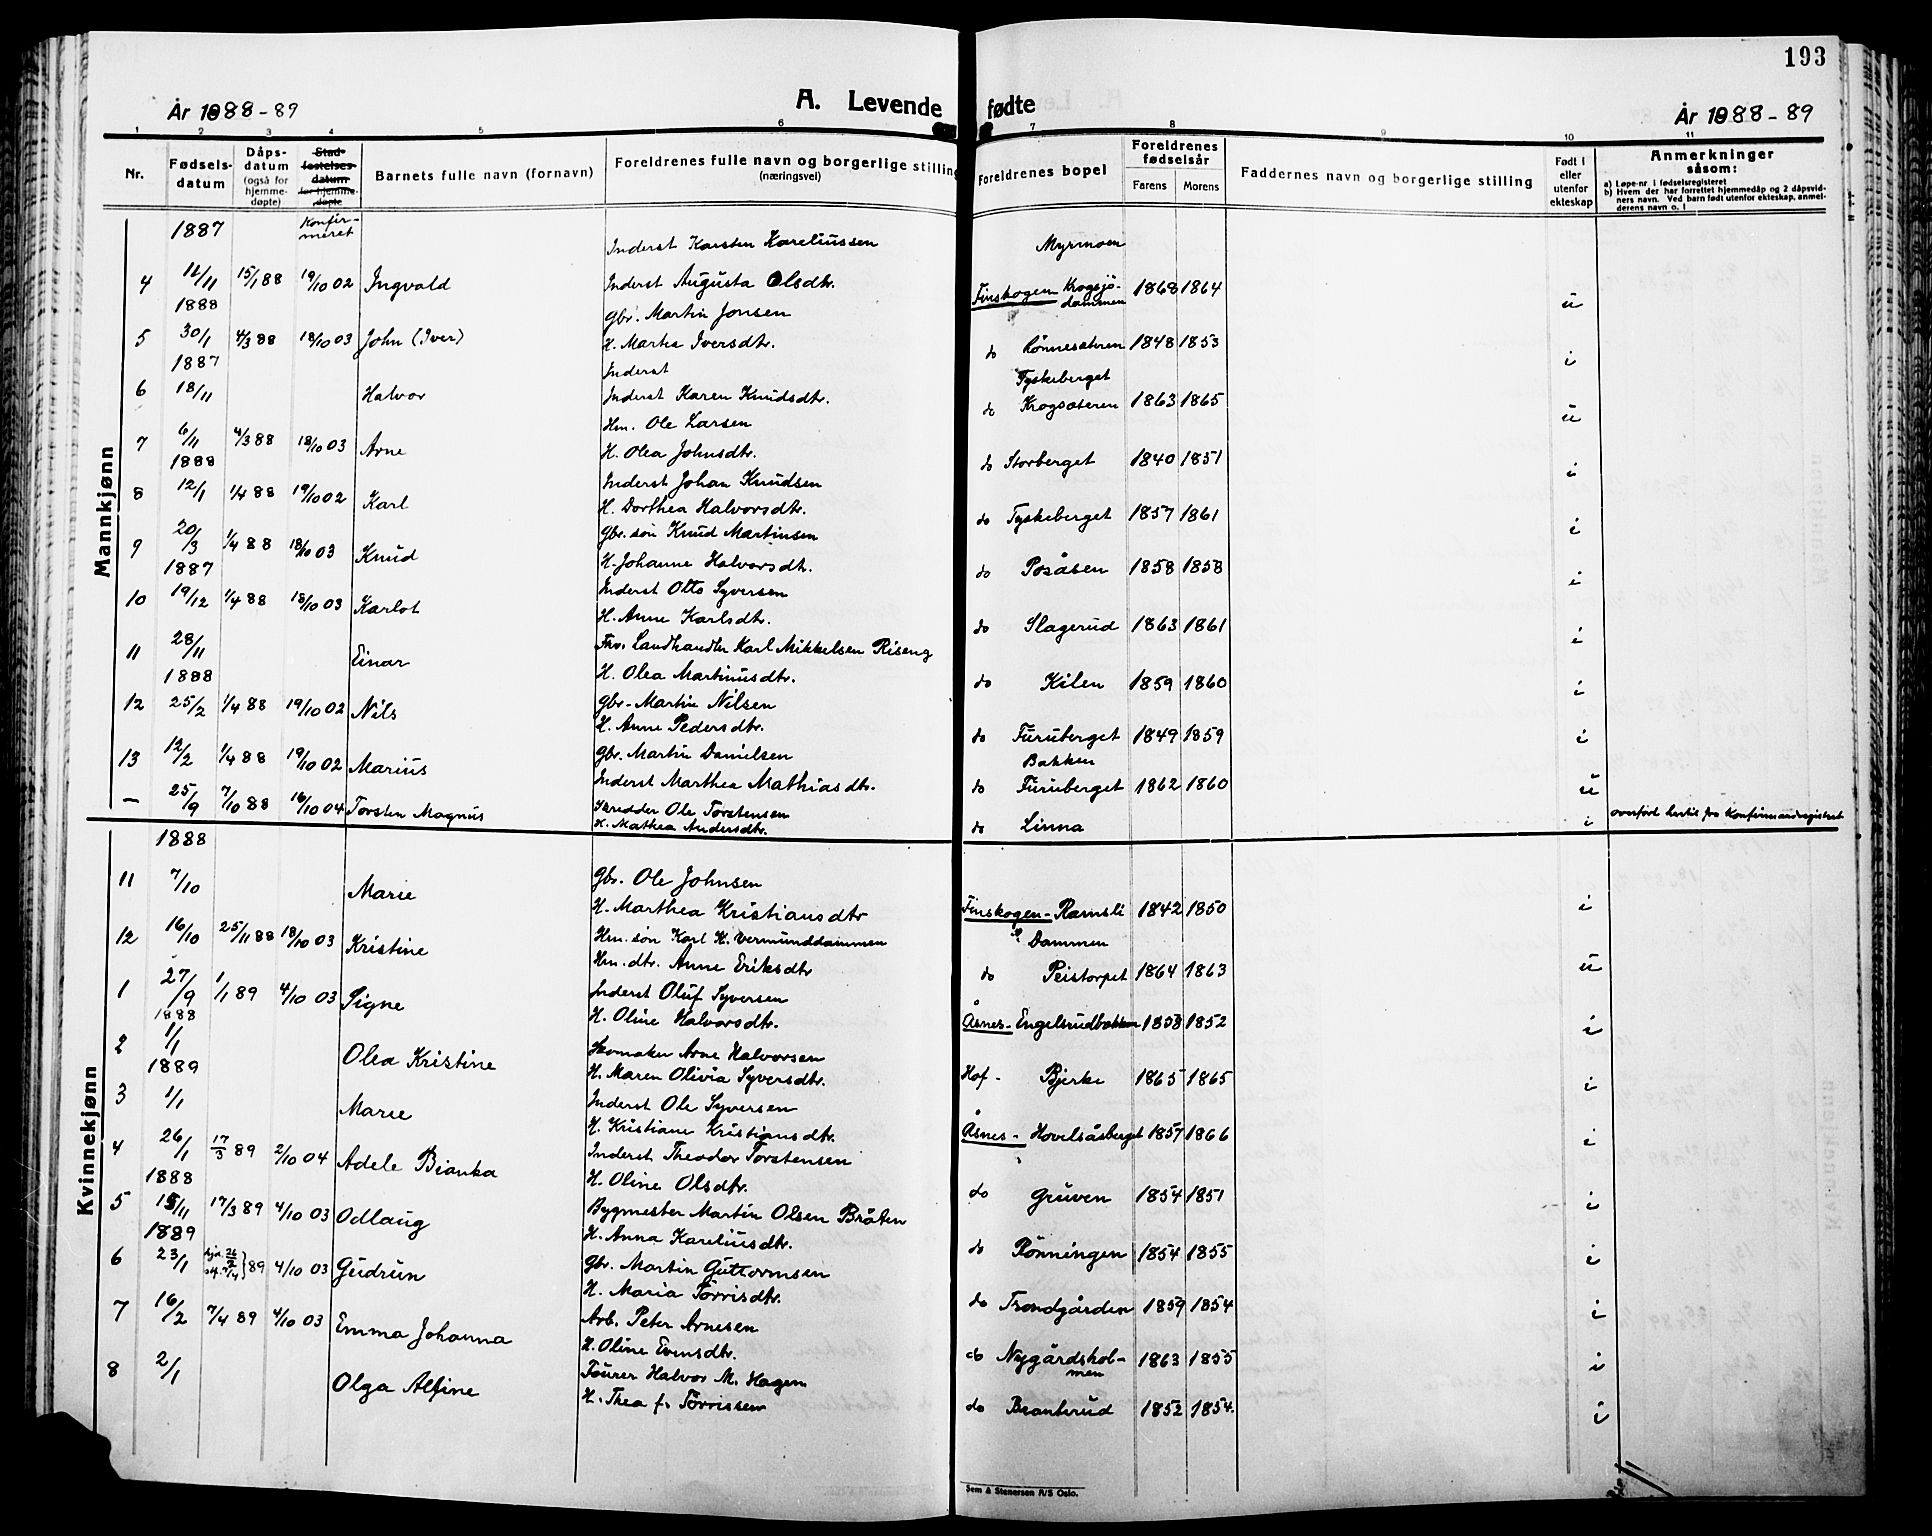 193
År 1888-89 A. Levende fødte År 1888-89
1 2 3 4 5 6 7 8 9 10 11
Nr. Fødselsdatum Dåpsdatum (også for hjemmedøpte) Stadfestelsesdatum for hjemmedøpte Barnets fulle navn (fornavn) Foreldrenes fulle navn og borgerlige stilling (næringsvei) Foreldrenes bopel Foreldrenes fødselsår Farens Morens Faddernes navn og borgerlige stilling Født i eller utenfor ekteskap Anmerkninger såsom:
a) Løpe-nr. i fødselsregisteret
b) Hvem der har forrettet hjemmedåp og 2 dåpsvidners navn. Ved barn født utenfor ekteskap, anmelderens navn o. l
Mannkjønn
1887 Konfirmeret Inderst Karsten Kareliussen Myrmoen
4 12/11 15/1 88 19/10 02 Ingvald Inderst Augusta Olsdtr. Finskogen Krogsjödammen 1868 1864 u
1888 Gbr. Martin Jonsen
5 30/1 4/3 88 18/10 03 John (Iver) H. Martea Iversdtr. do Rönnesæteren 1848 1853 i
1887 Inderst Tyskeberget
6 18/11 Halvor Inderst Karen Knudsdtr. do Krogsæteren 1863 1865 u
Hm. Ole Larsen
7 6/11 4/3 88 18/10 03 Arne H. Olea Johnsdtr. do Storberget 1840 1851 i
1888 Inderst Johan Knudsen
8 12/1 1/4 88 19/10 02 Karl H. Dorthea Halvorsdtr. do Tyskeberget 1857 1861 i
Gbr. søn Knud Martinsen
9 20/3 1/4 88 18/10 03 Knud H. Johanne Halvorsdtr. do Posåsen 1858 1858 i
1887 Inderst Otto Syversen
10 19/12 1/4 88 18/10 03 Karlot H. Anne Karlsdtr. do Slagerud 1863 1861 i
Fhv. Landhandler Karl Mikkelsen Riseng
11 28/11 Einar H. Olea Martinusdtr. do Kilen 1859 1860 i
1888 Gbr. Martin Nilsen
12 25/2 1/4 88 19/10 02 Nils H. Anne Pedersdtr. do Furuberget 1849 1859 i
Gbr. Martin Danielsen Bakken
13 12/2 1/4 88 19/10 02 Marius Inderst Marthea Mathiasdtr. do Furuberget 1862 1860 u
— 25/9 7/10 88 16/10 04 Torsten Magnus Skredder Ole Torstensen
H. Mathea Andersdtr. do Linna i overført hertil fra Konfirmandregistret
Kvinnekjønn
1888
Gbr. Ole Johnsen
11 7/10 Marie H. Marthea Kristiansdtr Finskogen- Ramsli 1842 1850 i
Hm. søn Karl K. Vermunddammen Dammen
12 16/10 25/11 88 18/10 03 Kristine Hm. dtr. Anne Eriksdtr do Peistorpet 1864 1863 u
Inderst Oluf Syversen
1 27/9 1/1 89 4/10 03 Signe H. Oline Halvorsdtr. Åsnes- Engelsrudbakken 1858 1852 i
1888 Skomaker Arne Halvorsen
2 1/1 Olea Kristine H. Maren Olivia Syversdtr. Hof- Bjerke 1865 1865 i
1889 Inderst Ole Syversen
3 1/1 Marie H. Kristiane Kristiansdtr. Åsnes- Hovelsåsberget 1857 1866 i
Inderst Theodor Torstensen
4 26/1 17/3 89 2/10 04 Adele Bianka H. Oline Olsdtr. do Gruven 1854 1851 i
1888 Bygmester Martin Olsen Bråten
5 15/11 17/3 89 4/10 03 Odlaug H. Anna Kareliusdtr. do Rönningen 1854 1855 i
1889 Gbr. Martin Guttormsen
6 23/1 89 4/10 03 Gudrun H. Maria Torrisdtr. do Trondgården 1859 1854 i
Arb. Peter Arnesen
7 16/2 7/4 89 4/10 03 Emma Johanna H. Oline Evensdtr. do Nygårdsholmen 1863 1855 i
Fourer Halvor M. Hagen
8 2/1 Olga Alfine H. Thea f. Torrissen do Branterud 1852 1854. i
Sem & Stenersen A/S Oslo.